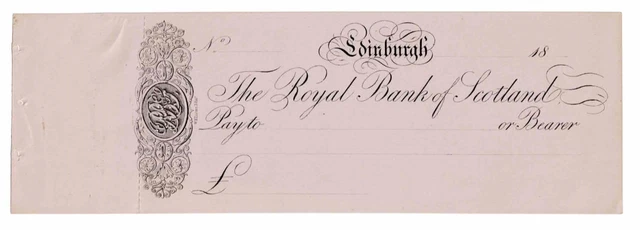 No Edinburgh 18
The Royal Bank of Scotland
Pay to or Bearer
£